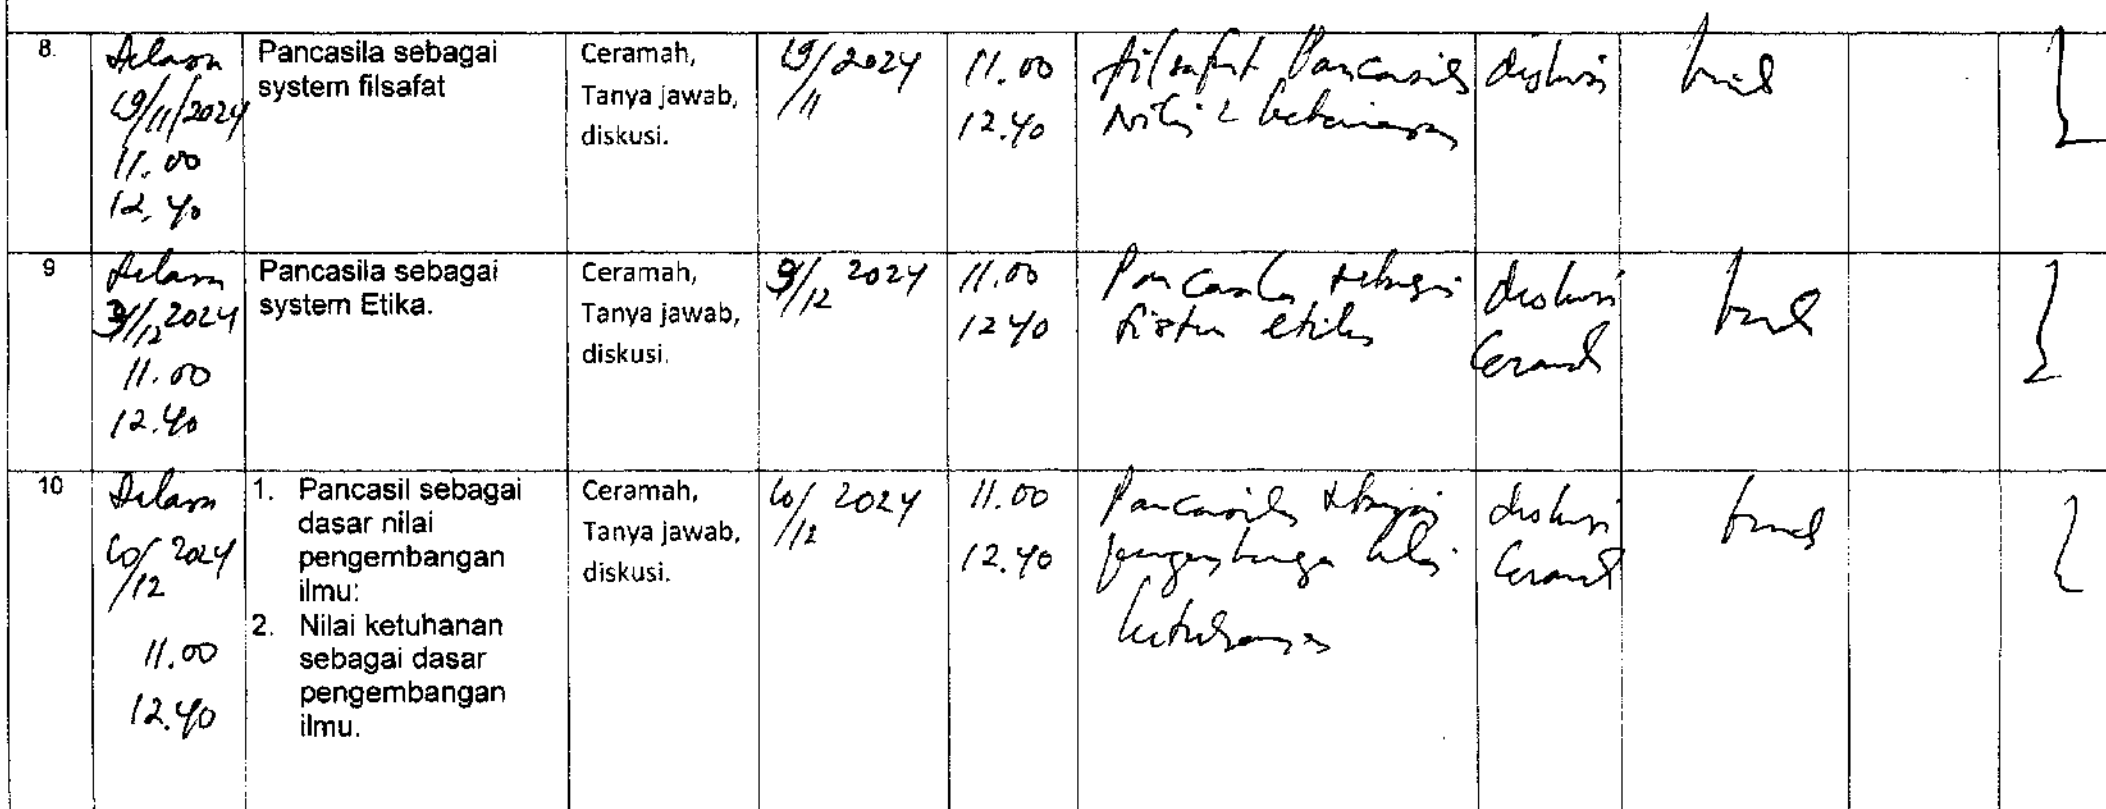 8.
Selasa
19/11/2024
11.00
12.40
Pancasila sebagai
system filsafat
Ceramah,
Tanya jawab,
diskusi.
19/11 2024
11.00
12.40
filsafat Pancasila
diskusi
9
Selasa
3/12 2024
11.00
12.40
Pancasila sebagai
system Etika.
Ceramah,
Tanya jawab,
diskusi.
/12 2024
11.00
12 40
Pancasila sebagai
sistem etika
diskusi
Ceramah
10
Selasa
10/12 2024
11.00
12.40
1. Pancasil sebagai
dasar nilai
pengembangan
ilmu:
2. Nilai ketuhanan
sebagai dasar
pengembangan
ilmu.
Ceramah,
Tanya jawab,
diskusi.
10/12 2024
11.00
12.40
Pancasila sebagai
pengembangan nilai
ketuhanan
diskusi
Ceramah